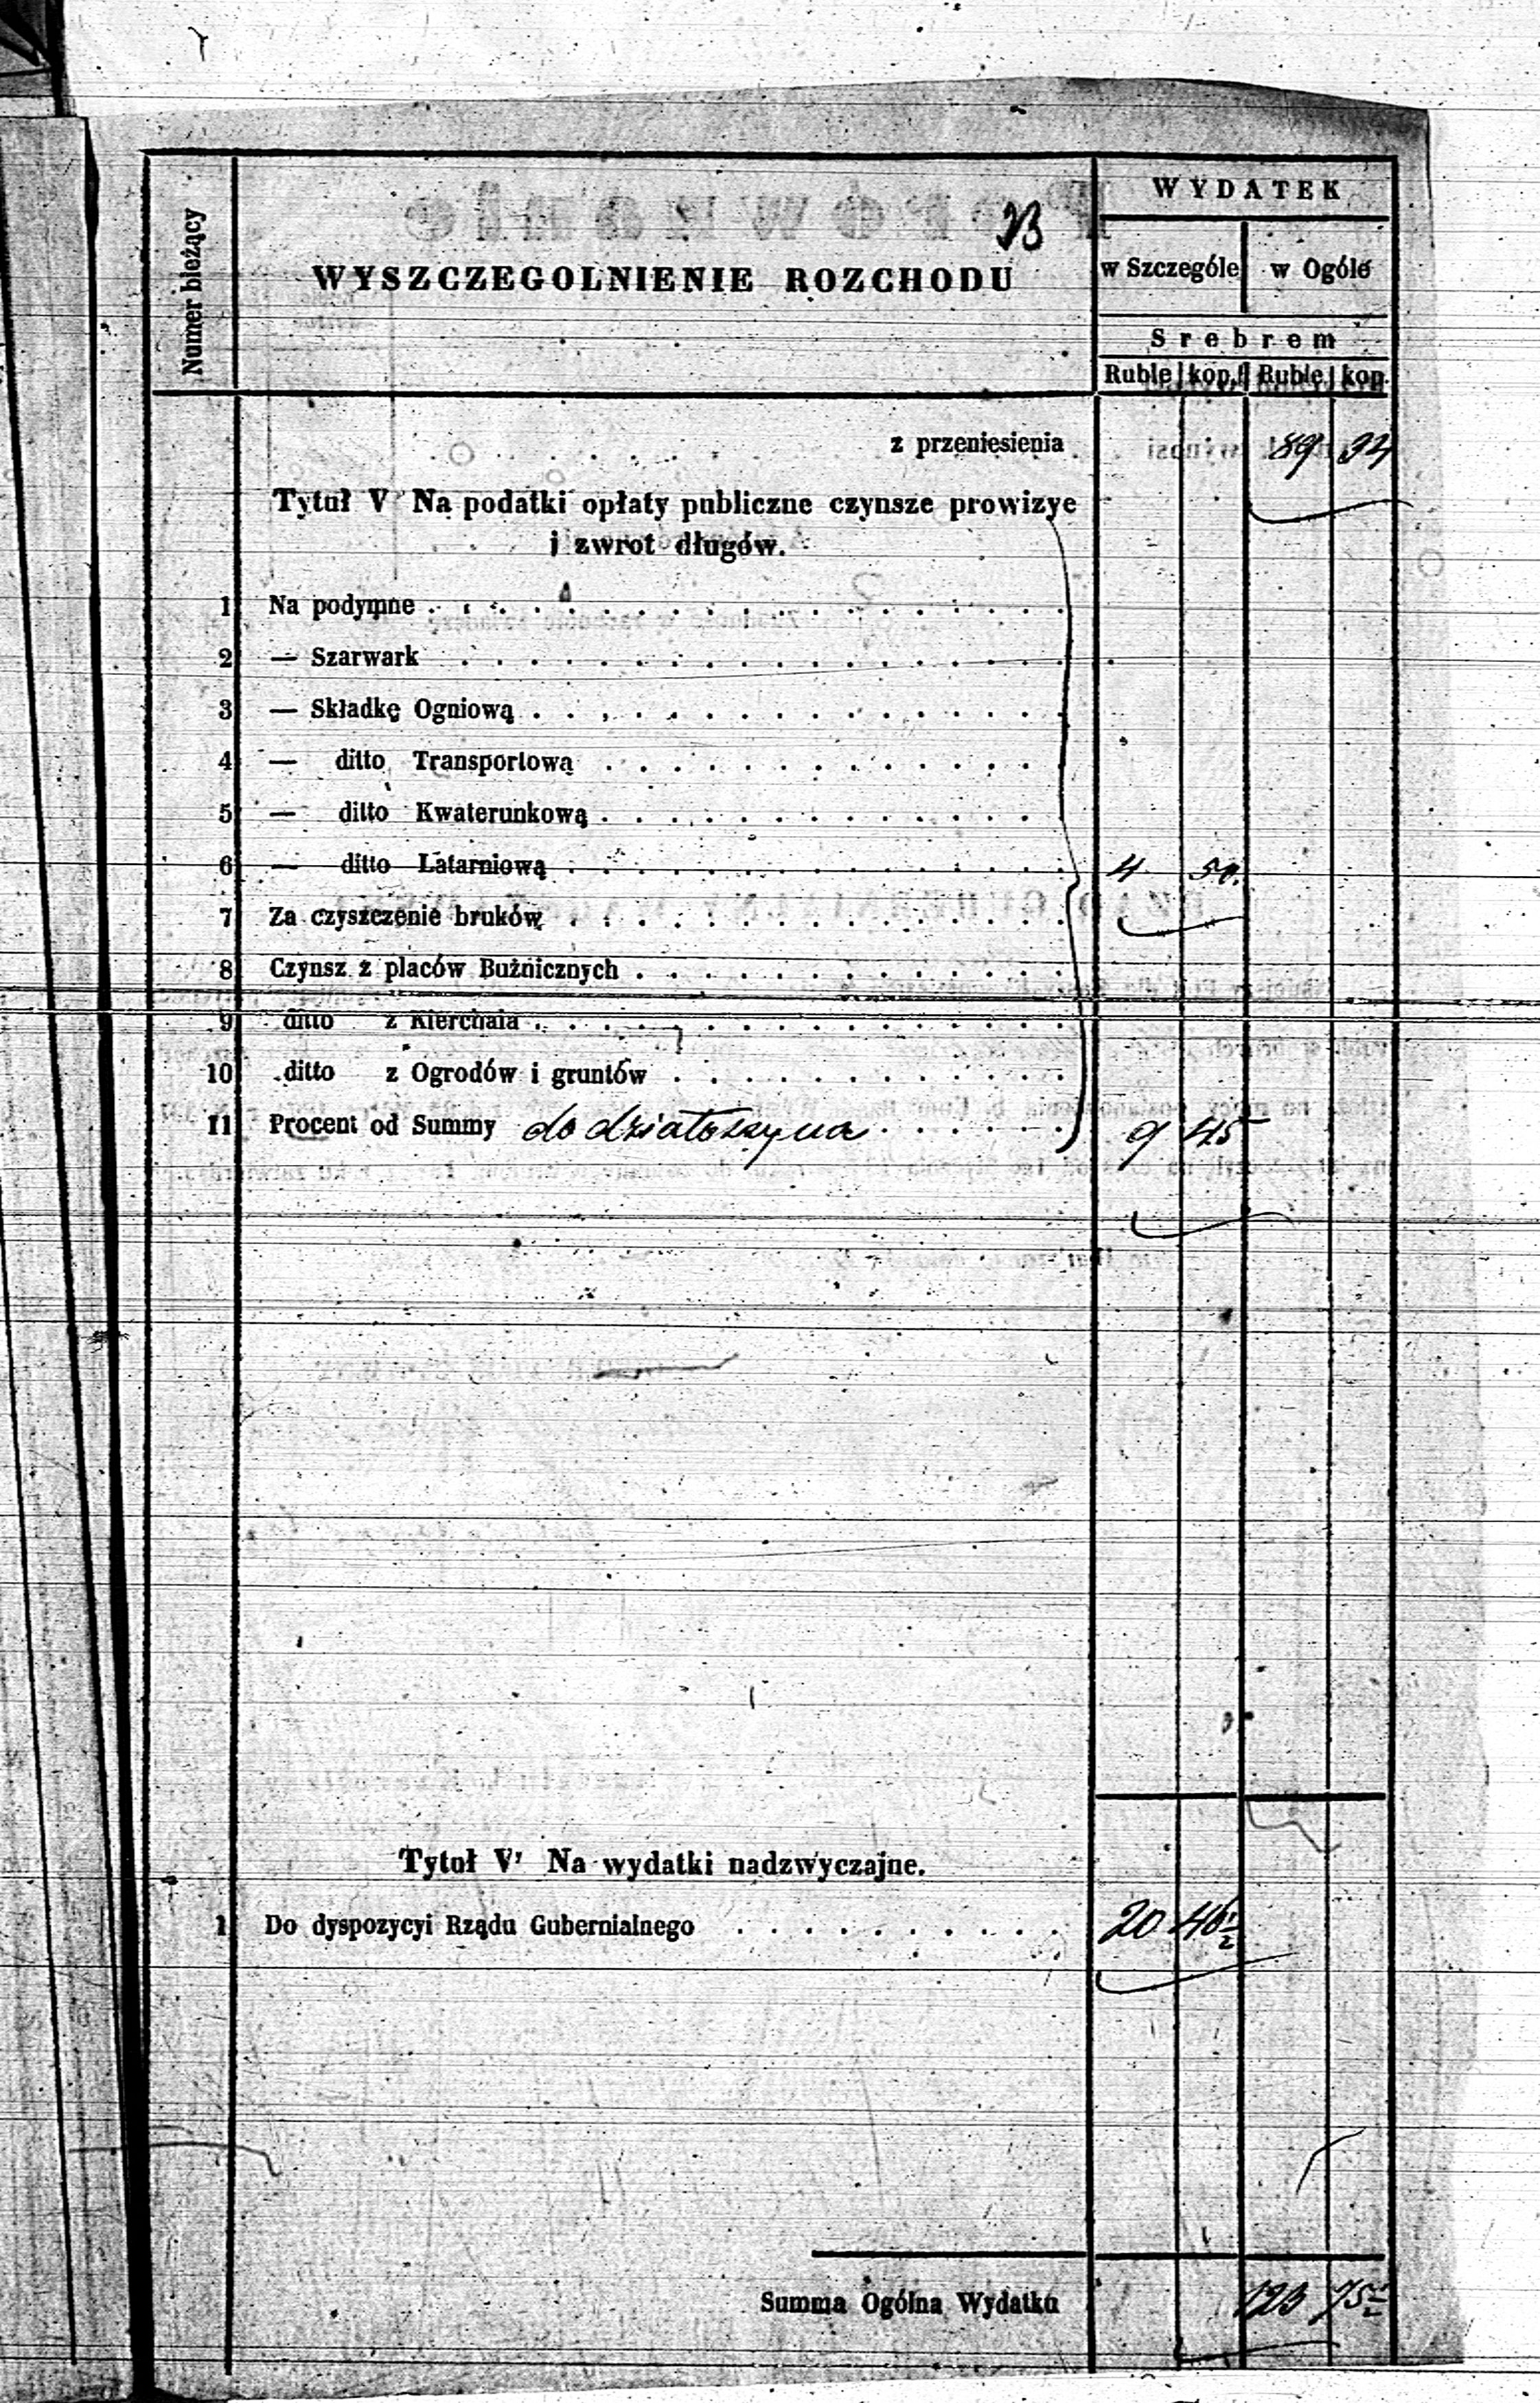 WYDATEK
WYSZCZEGOLNIENIE ROZCHODU
Numer bieżący
w Szczególe w Ogóle
Srebrem
Ruble kop. Ruble kop.
z przeniesienia 89 34
Tytuł V Na podatki opłaty publiczne czynsze prowizye
i zwrot długów.
1 Na podymne
2 — Szarwark
3 — Składkę Ogniową
4 — ditto Transportową
5 — ditto Kwaterunkową
6 — ditto Latarniową 4 50.
7 Za czyszczenie bruków
8 Czynsz z placów Bużnicznych
9 ditto z Kierchala
10 ditto z Ogrodów i gruntów
11 Procent od Summy do działoszyna 9 45
Tytoł V' Na wydatki nadzwyczajne.
1 Do dyspozycyi Rządu Gubernialnego 20 46 1/2
Summa Ogólna Wydatku 123 75 1/2